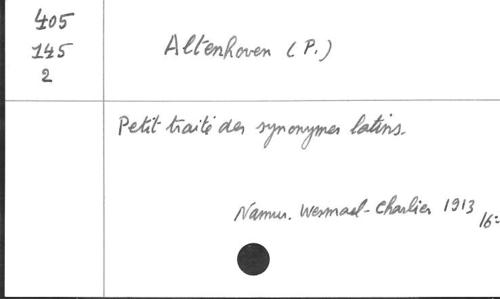 405
145
2
Altenhoven (P.)
Petit traité des synonymes latins.
Namur. Wesmael-Charlier 1913
16=